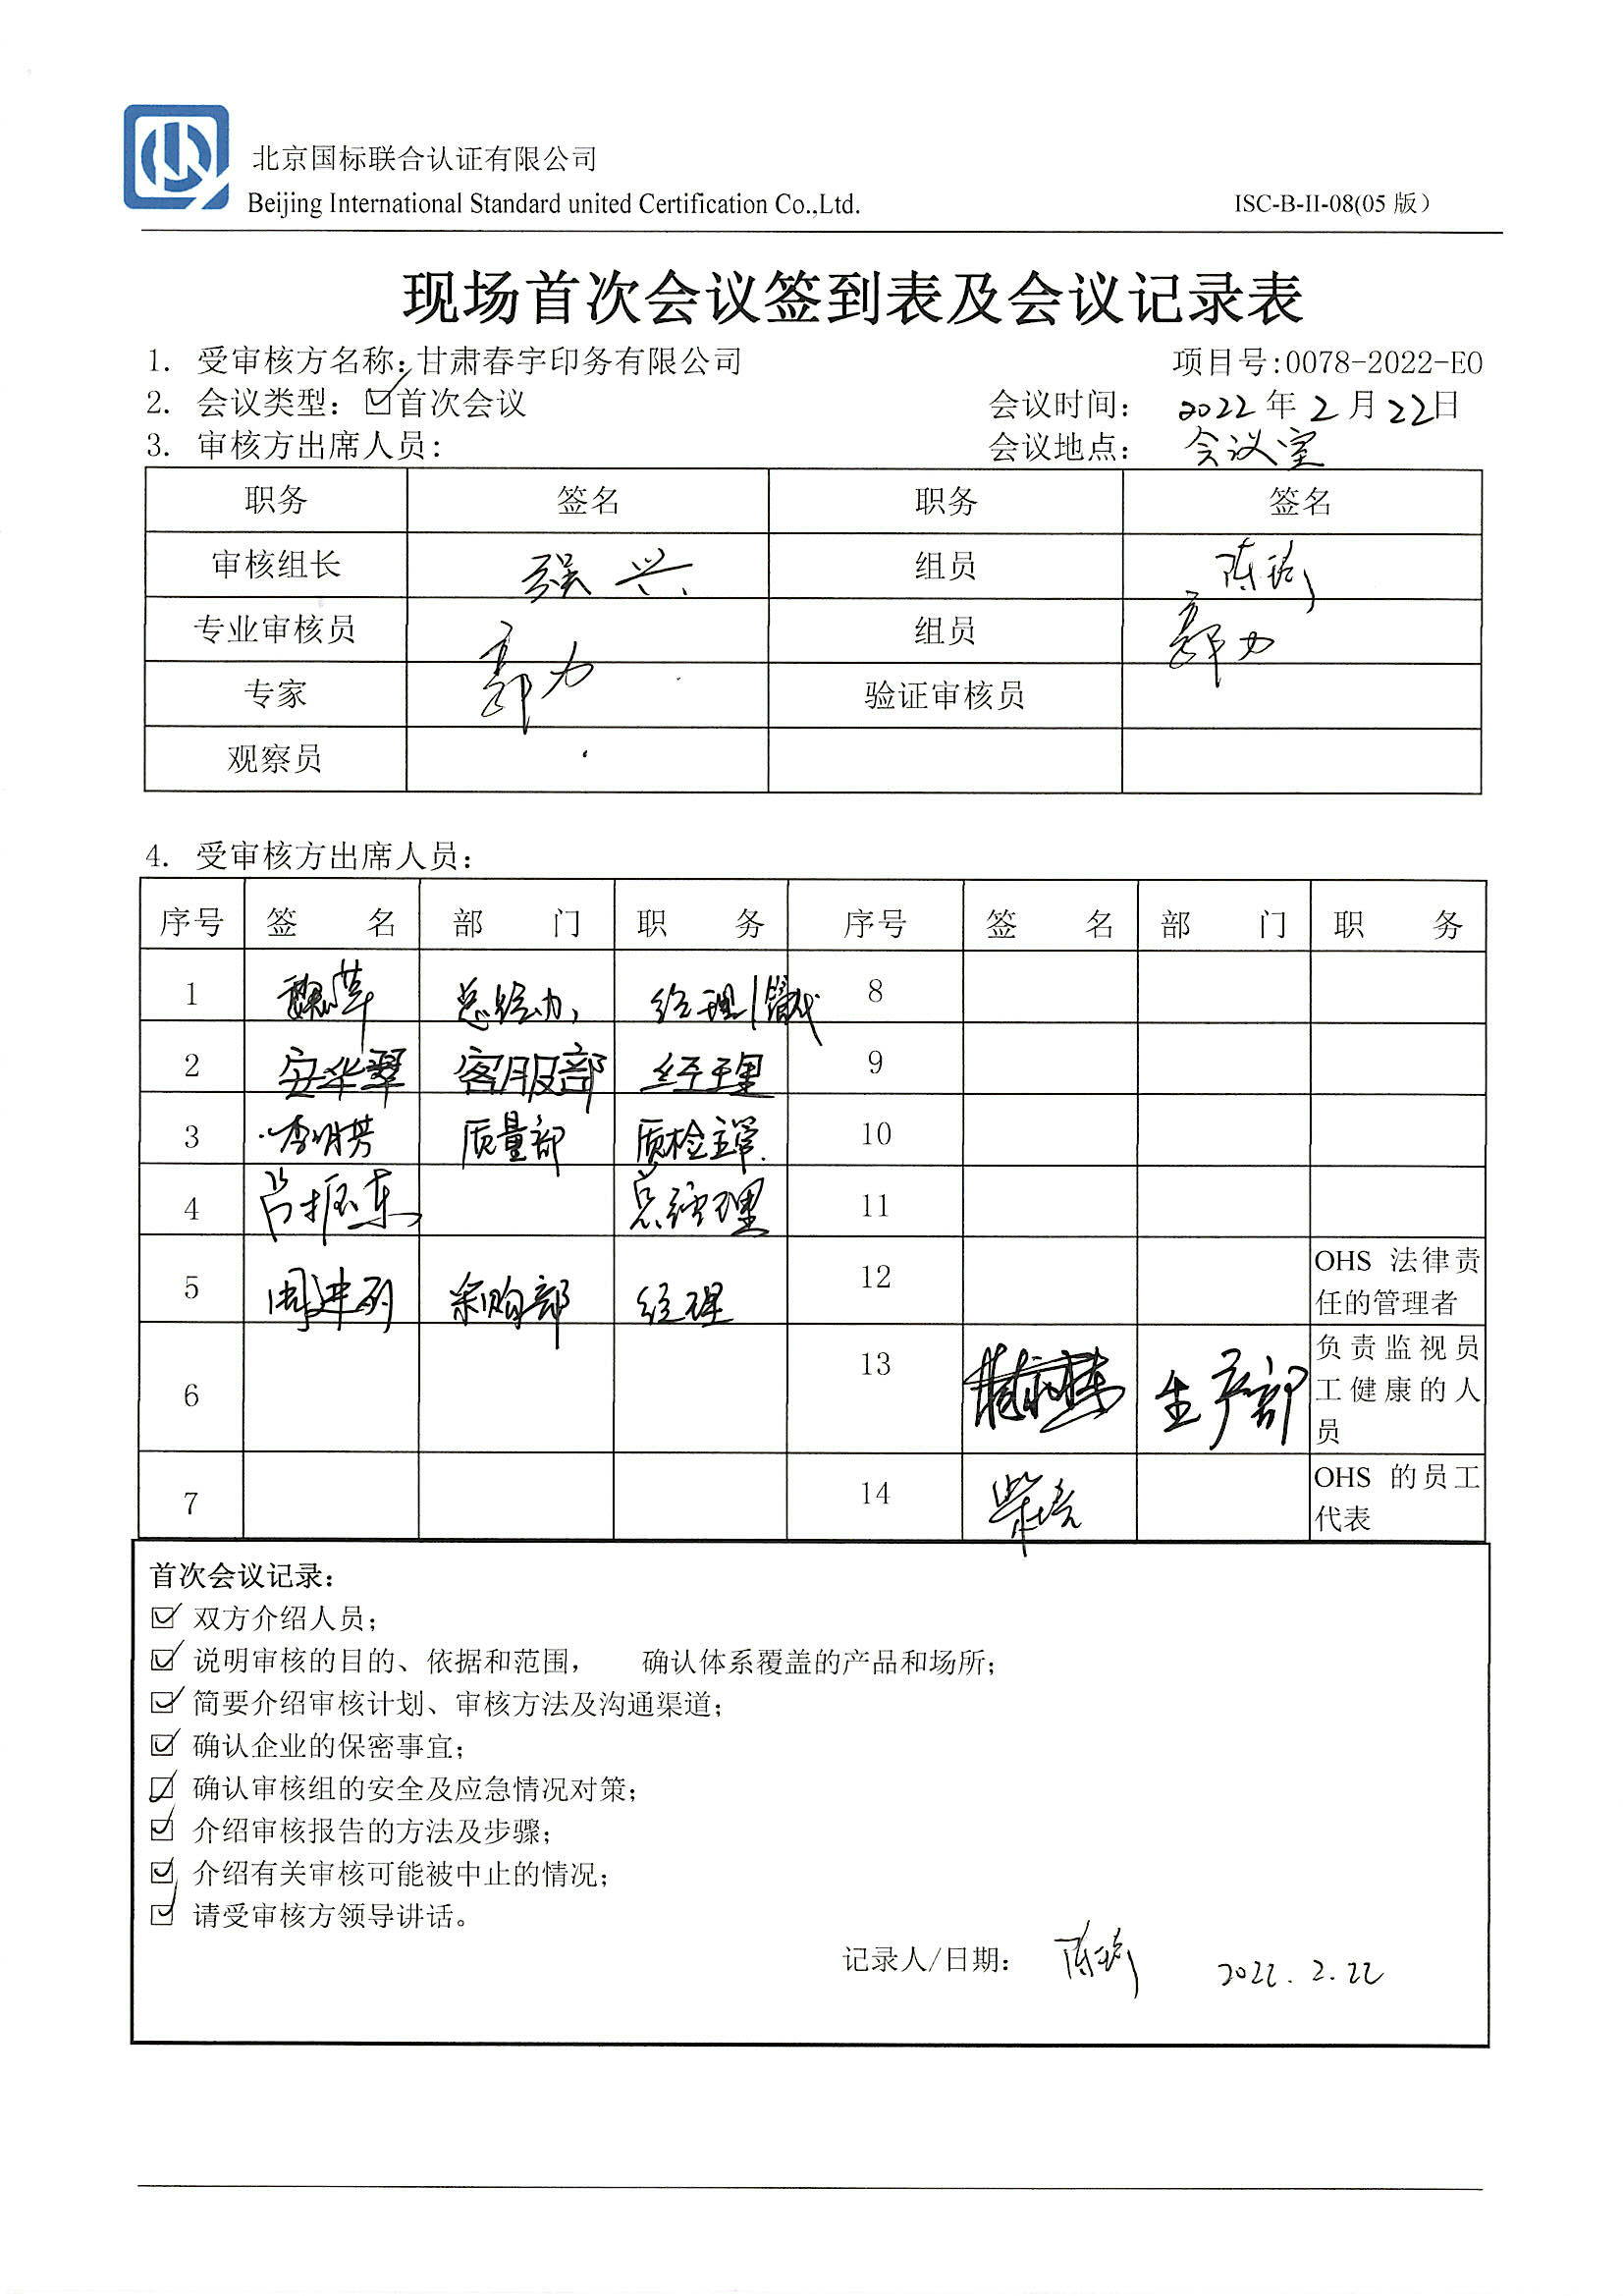 北京国标联合认证有限公司
Beijing International Standard united Certification Co.,Ltd.
ISC-B-II-08(05 版)
现场首次会议签到表及会议记录表
1. 受审核方名称：甘肃春宇印务有限公司 项目号:0078-2022-EO
2. 会议类型：☑首次会议 会议时间： 2022 年 2 月 22日
3. 审核方出席人员： 会议地点： 会议室
职务 签名 职务 签名
审核组长 强兴 组员
专业审核员 郭力 组员 郭力
专家 验证审核员
观察员
4. 受审核方出席人员：
序号 签 名 部 门 职 务 序号 签 名 部 门 职 务
1 总经办 经理/管代 8
2 安华翠 客服部 经理 9
3 李明芳 质量部 质检主管 10
4 吕振东 总经理 11
5 采购部 经理 12 OHS 法律责任的管理者
6 13 生产部 负责监视员工健康的人员
7 14 OHS 的员工代表
首次会议记录：
☑ 双方介绍人员；
☑ 说明审核的目的、依据和范围， 确认体系覆盖的产品和场所；
☑ 简要介绍审核计划、审核方法及沟通渠道；
☑ 确认企业的保密事宜；
☑ 确认审核组的安全及应急情况对策；
☑ 介绍审核报告的方法及步骤；
☑ 介绍有关审核可能被中止的情况；
☑ 请受审核方领导讲话。
记录人/日期： 2022.2.22